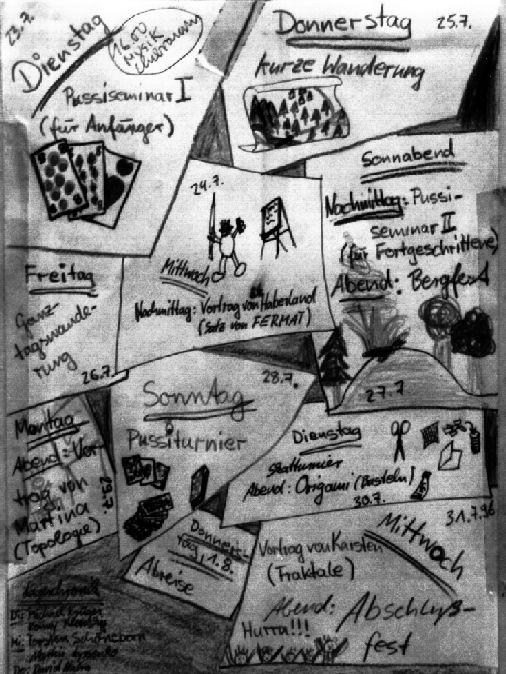 23.7.
Dienstag
16.00
Musik
Pussiseminar I
(für Anfänger)
Donnerstag
25.7.
kurze Wanderung
24.7.
Mittwoch
Nachmittag: Vortrag von Haberland
(Satz von FERMAT)
Sonnabend
Nachmittag: Pussi-
seminar II
(für Fortgeschrittene)
Abend: Bergfest
27.7
Freitag
Ganz-
tagswande-
rung
26.7.
Sonntag
28.7.
Pussiturnier
Montag
Abend: Vor-
trag von
Martina
(Topologie)
29.7.
Dienstag
Skatturnier
Abend: Origami (Basteln)
30.7.
Donners-
tag, 1.8.
Abreise
Mittwoch
31.7.96
Vortrag von Karsten
(Fraktale)
Abend: Abschluß-
fest
Hurra!!!
Di: Michael
Mi: Torsten Schöneborn
Do: David